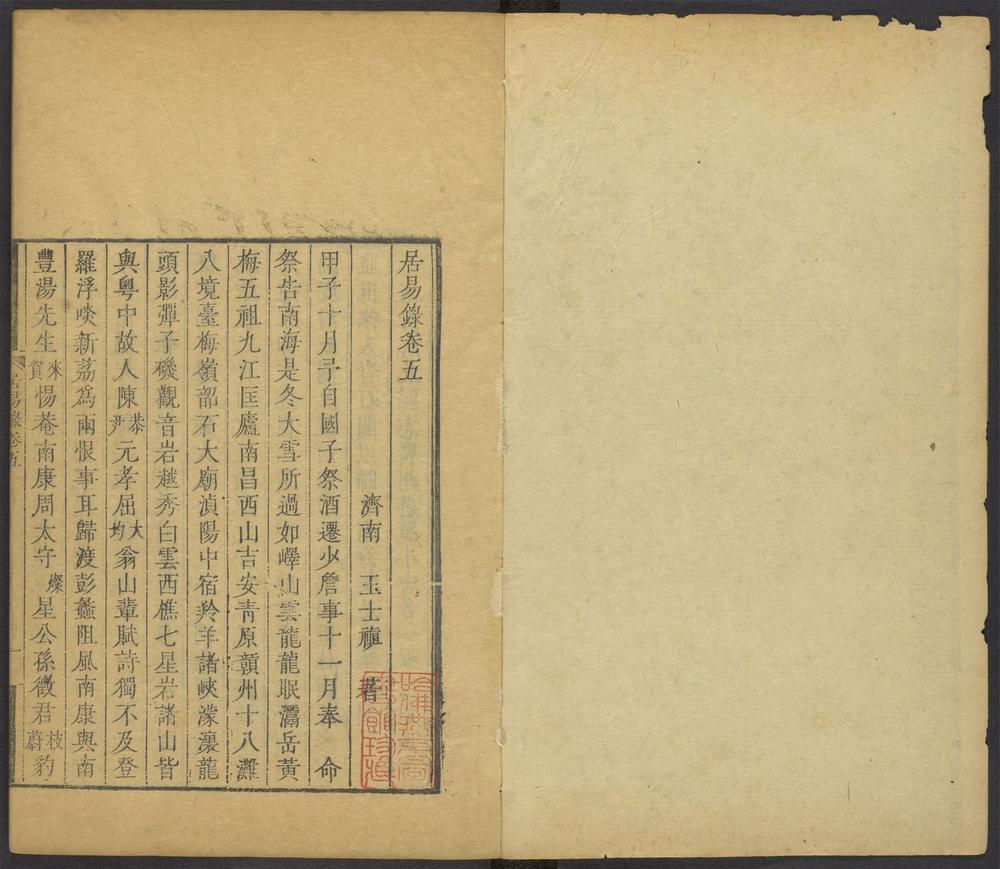 居易錄卷五
濟南 王士禛 著
甲子十月予自國子祭酒遷少詹事十一月奉 命
祭告南海是冬大雪所過如嶧山雲龍龍眠灊岳黃
梅五祖九江匡廬南昌西山吉安青原贛州十八灘
八境臺梅嶺韶石大廟湞陽中宿羚羊諸峽濛瀼龍
頭影彈子磯觀音岩越秀白雲西樵七星岩諸山皆
與粵中故人陳恭尹元孝屈大均翁山輩賦詩獨不及登
羅浮啖新荔爲兩恨事耳歸渡彭蠡阻風南康與南
豐湯先生來賀惕菴南康周太守燦星公孫徵君枝蔚豹
居易錄卷五